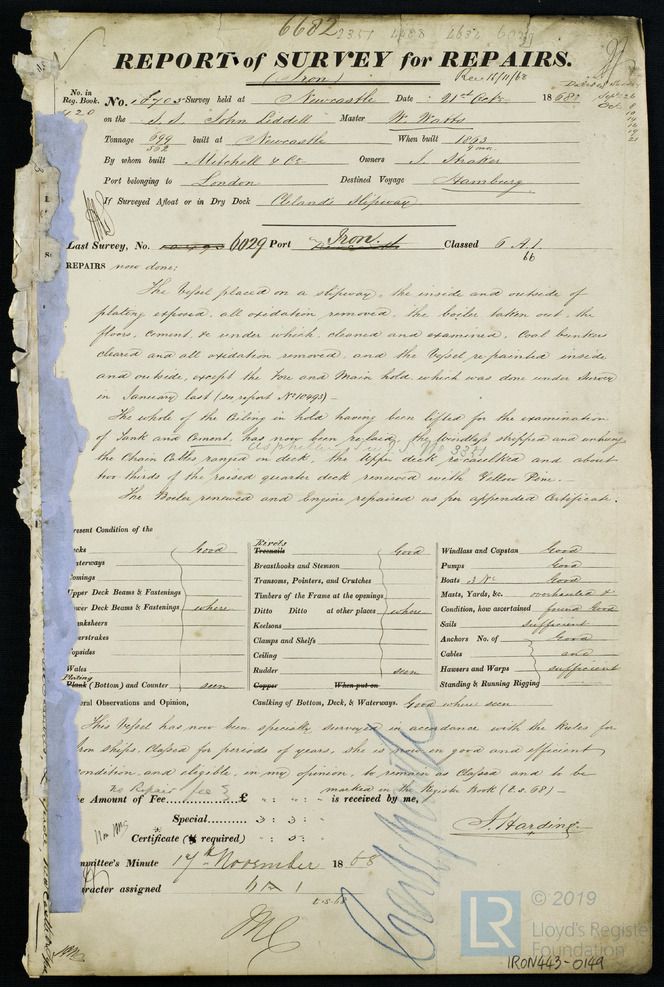 6682 2351 4688 4632 6029
REPORT of SURVEY for REPAIRS.
(Iron) Rec 11/11/68
No. in Reg. Book. No. 18705 Survey held at Newcastle Date 21st Octr 1868
420 on the S.S. John Liddell Master W. Watts
Tonnage 699 built at Newcastle When built 1863
562 9 mo.
By whom built Mitchell & Co. Owners J. Straker
Port belonging to London Destined Voyage Hamburg
If Surveyed Afloat or in Dry Dock Clelands Slipway
Last Survey, No. 6029 Port Iron. Classed 6 A.1.
66
REPAIRS now done:
The Vessel placed on a slipway, the inside and outside of
plating exposed, all oxidation removed, the boiler taken out, the
floors, cement, &c under which, cleaned and examined, Coal bunkers
cleared and all oxidation removed, and the Vessel re-painted inside
and outside, except the Fore and Main hold which was done under Survey
in January last (see report No 10493) —
The whole of the Ceiling in hold having been lifted for the examination
of Tank and Cement, has now been re-laid, the windlass stripped and unhung
the Chain Cables ranged on deck, the Upper deck recaulked and about
two thirds of the raised quarter deck renewed with Yellow Pine. —
The Boiler renewed and Engine repaired as per appended Certificate.
resent Condition of the
ecks Good
aterways
omings
pper Deck Beams & Fastenings
ower Deck Beams & Fastenings where
anksheers
verstrakes
opsides
Wales
Plating
Plank (Bottom) and Counter seen
Rivets
Treenails Good
Breasthooks and Stemson
Transoms, Pointers, and Crutches
Timbers of the Frame at the openings
Ditto Ditto at other places where
Keelsons
Clamps and Shelfs
Ceiling
Rudder seen
Copper When put on
Windlass and Capstan Good
Pumps Good
Boats 3 No. Good
Masts, Yards, &c. overhauled &
Condition, how ascertained found Good
Sails sufficient
Anchors No. of Good
Cables and
Hawsers and Warps sufficient
Standing & Running Rigging
eral Observations and Opinion, Caulking of Bottom, Deck, & Waterways. Good where seen
This Vessel has now been specially surveyed in accordance with the Rules for
Iron ships, Classed for periods of years, she is now in good and efficient
condition, and eligible, in my opinion, to remain as Classed and to be
marked in the Register Book (t.s. 68) —
no Repair fee
e Amount of Fee............... £ " : " : " is received by me,
Special............... 3 : 3 :
Certificate (if required) " : 5 :
J. Harding
mmittee's Minute 17th November 1868
racter assigned 6 A 1
t.s.68
© 2019
LR
Lloyd's Register
Foundation
IRON443-0149